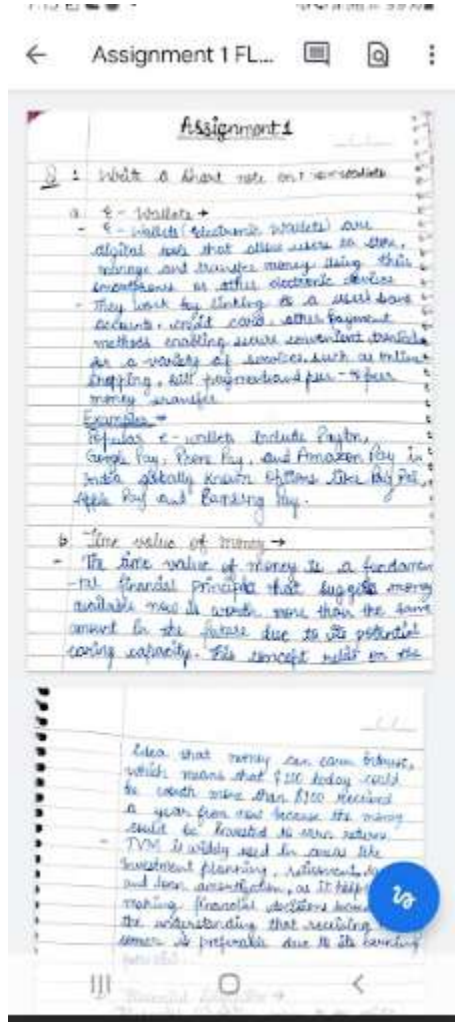 Assignment 1 FL...
Assignment 1
Q 1 Write a short note on :
a. E-Wallets →
- E-wallets (Electronic Wallets) are
digital tools that allow users to store,
manage and transfer money using their
smartphones or other electronic devices
- They work by linking to a user's bank
accounts, credit card, other payment
methods enabling secure convenient
for a variety of services, such as online
shopping, bill payments and peer-to-peer
money transfer
Examples →
Popular e-wallets include Paytm,
Google Pay, Phone Pay, and Amazon Pay in
India globally known options like Pay Pal,
Apple Pay and Pay.
b Time value of money →
- The time value of money is a fundamen
-tal financial principle that suggests money
available now is worth more than the same
amount in the future due to its potential
earning capacity. This concept relies on the
idea that money can earn interest,
which means that $100 today could
be worth more than $100 received
a year from now because the money
could be invested to earn returns
- TVM is widely used in areas like
investment planning, retirement
and loan amortization, as it help
making financial decisions
the understanding that receiving
sooner is preferable due to its